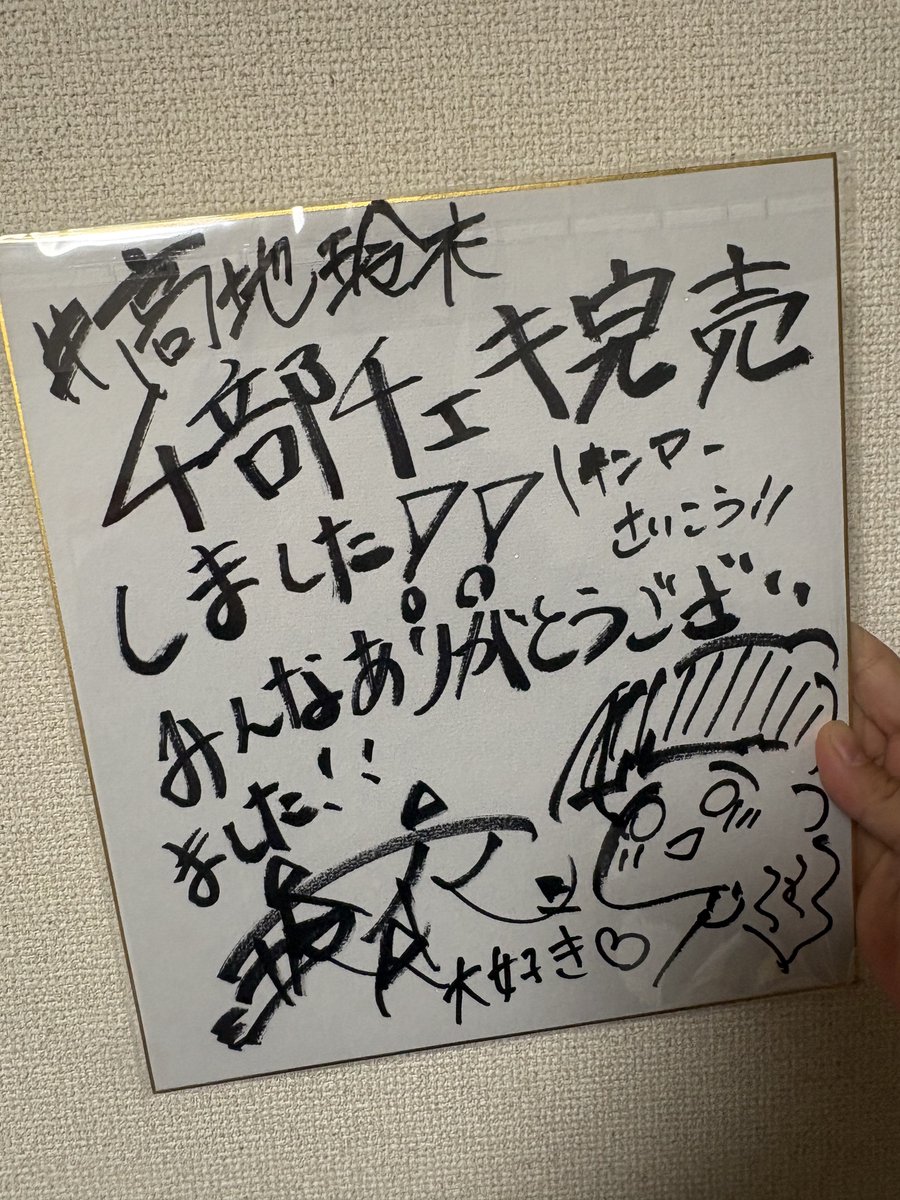 高地玲木
4部チェキ完売
しました!!
キンマー
さいこう!!
みんなありがとうござい
ました!!
大好き♡